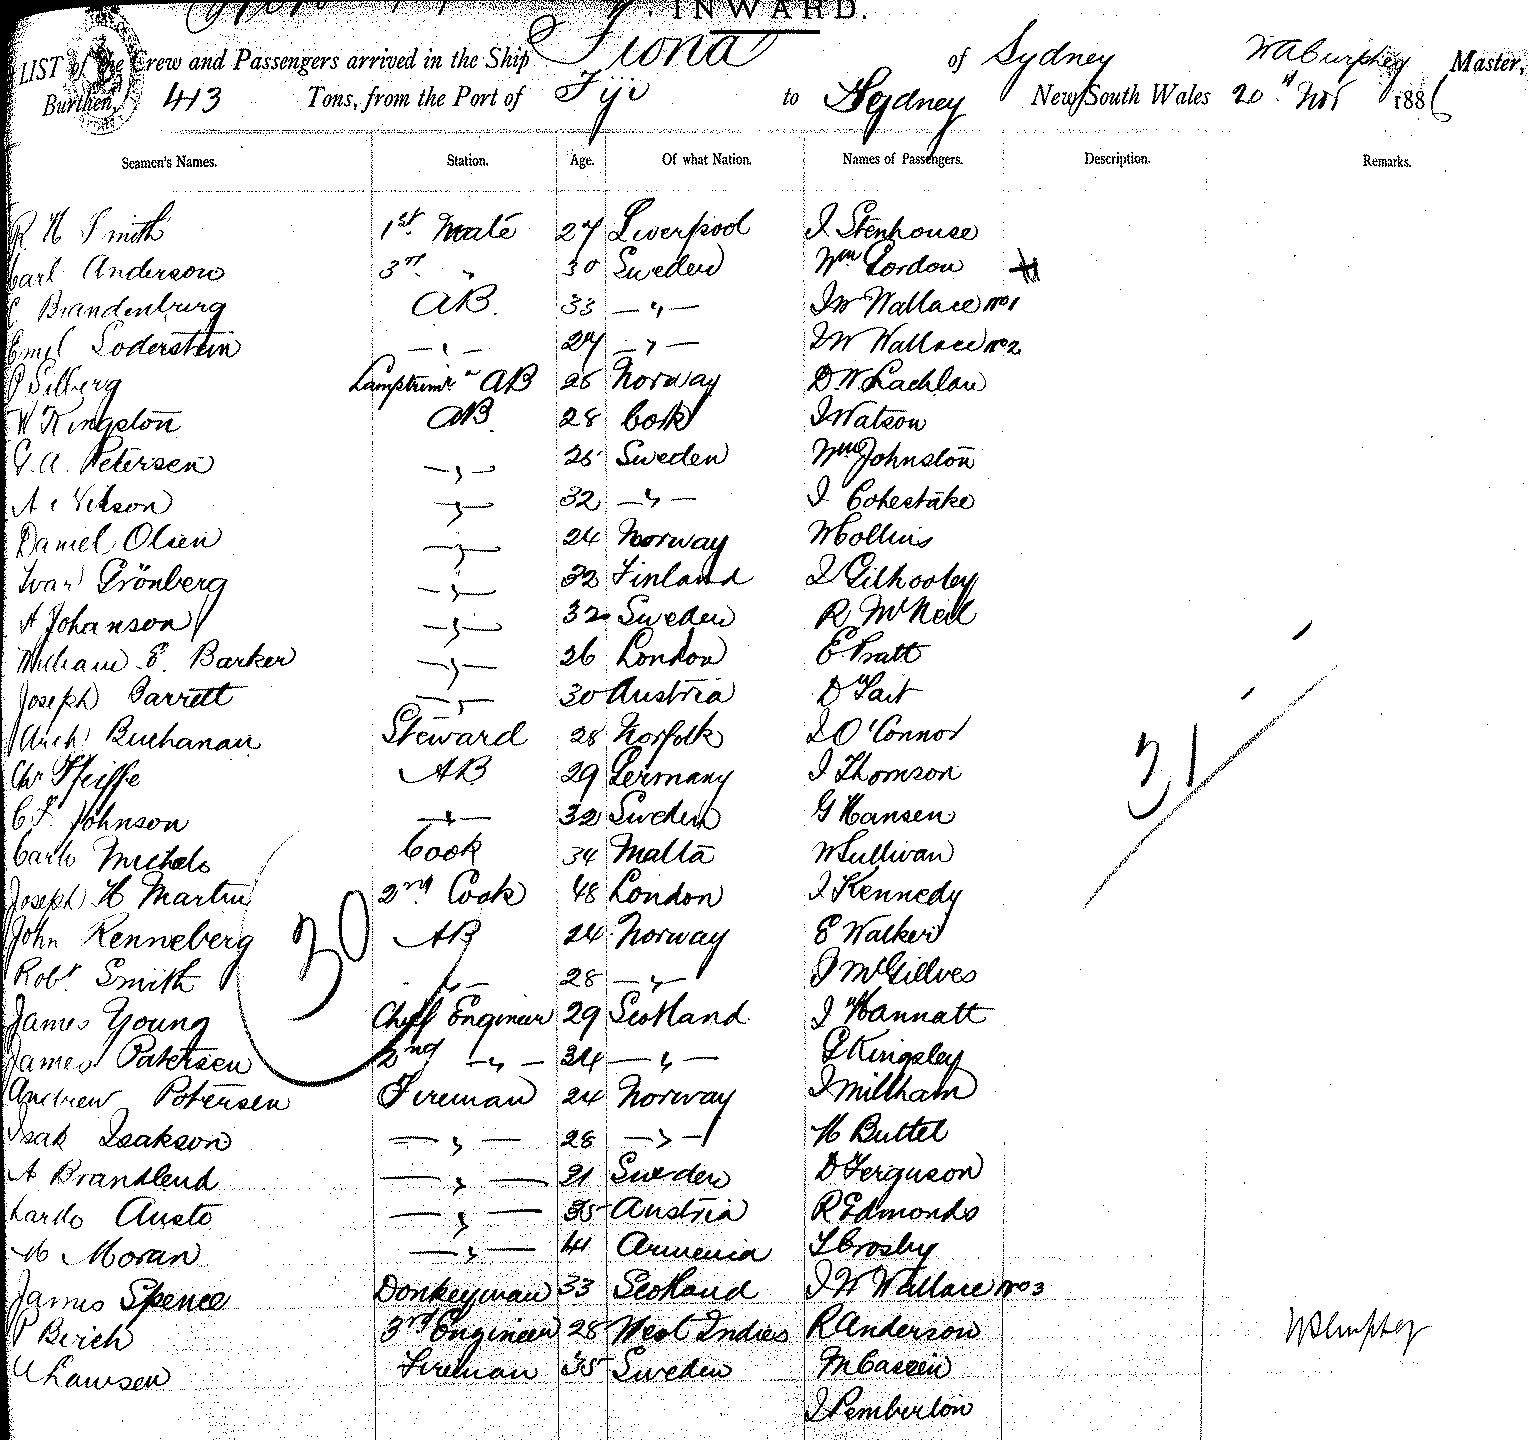 INWARD.
LIST of the Crew and Passengers arrived in the Ship Fiona of Sydney Master,
Burthen, 413 Tons, from the Port of Fiji to Sydney New South Wales 20th Nov 1886
Seamen's Names. Station. Age. Of what Nation. Names of Passengers. Description. Remarks.
R H Smith 1st Mate 27 Liverpool J Stenhouse
Carl Anderson 3rd " 30 Sweden Wm Gordon
C Brandenburg AB. 33 — " — J W Wallace No 1
Emel Soderstein — " — 27 — " — J W Wallace No 2
Lamptrimr AB Norway D W Lachlan
W Kingston AB. 28 Cork J Watson
G. A. Petersen — " — Sweden Wm Johnston
A — " — 32 — " — J Cohestake
Daniel Olsen — " — 24 Norway W Collins
Ivar Grönberg — " — 32 Finland J Gilhooley
A Johanson — " — 32 Sweden R McNeil
William E. Barker — " — 26 London E Pratt
Joseph Barrett — " — 30 Austria D Tait
Archd Buchanan Steward 28 Norfolk J O'Connor
Chr Pfeiffe AB 29 Germany J Thomson
C F Johnson — " — 32 Sweden G Hansen
31
Carlo Michelo Cook 34 Malta W Sullivan
Joseph H Martin 2nd Cook 48 London J Kennedy
John Renneberg AB 24 Norway E Walker
30
Robt Smith — " — 28 — " — J McGillves
James Young Chief Engineer 29 Scotland J Hannatt
James Patersen 2nd — " — 24 — " — G Kingsley
Andrew Petersen Fireman 24 Norway J Millham
Isak Isakson — " — 28 — " — H Buttel
A Brandlend — " — 21 Sweden D Ferguson
Carlo Austo — " — 35 Austria R Edmonds
H Moran — " — 41 Armenia T Crosby
James Spence Donkeyman 33 Scotland J W Wallace No 3
P Birch 3rd Engineer 28 West Indies R Anderson
Lawsen Fireman 35 Sweden M
J Pemberton